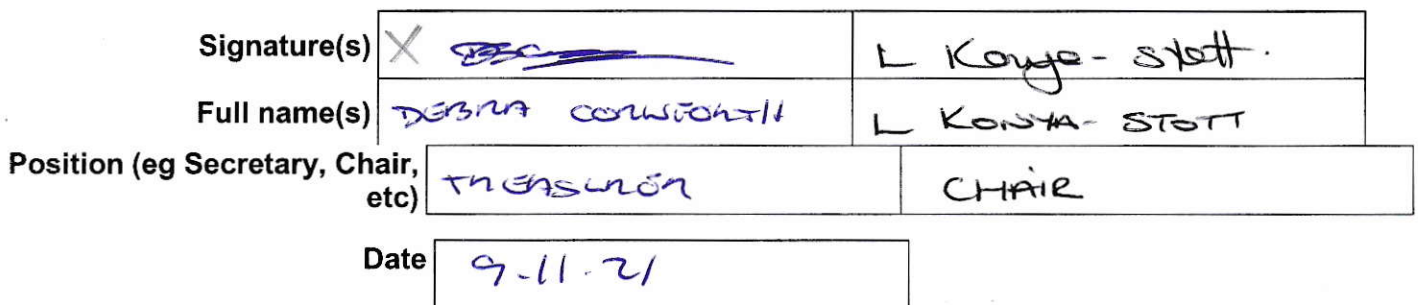 Signature(s) X L Konya-Stott.
Full name(s) DEBRA CORNFORTH L KONYA-STOTT
Position (eg Secretary, Chair,
etc) TREASURER CHAIR
Date 9.11.21